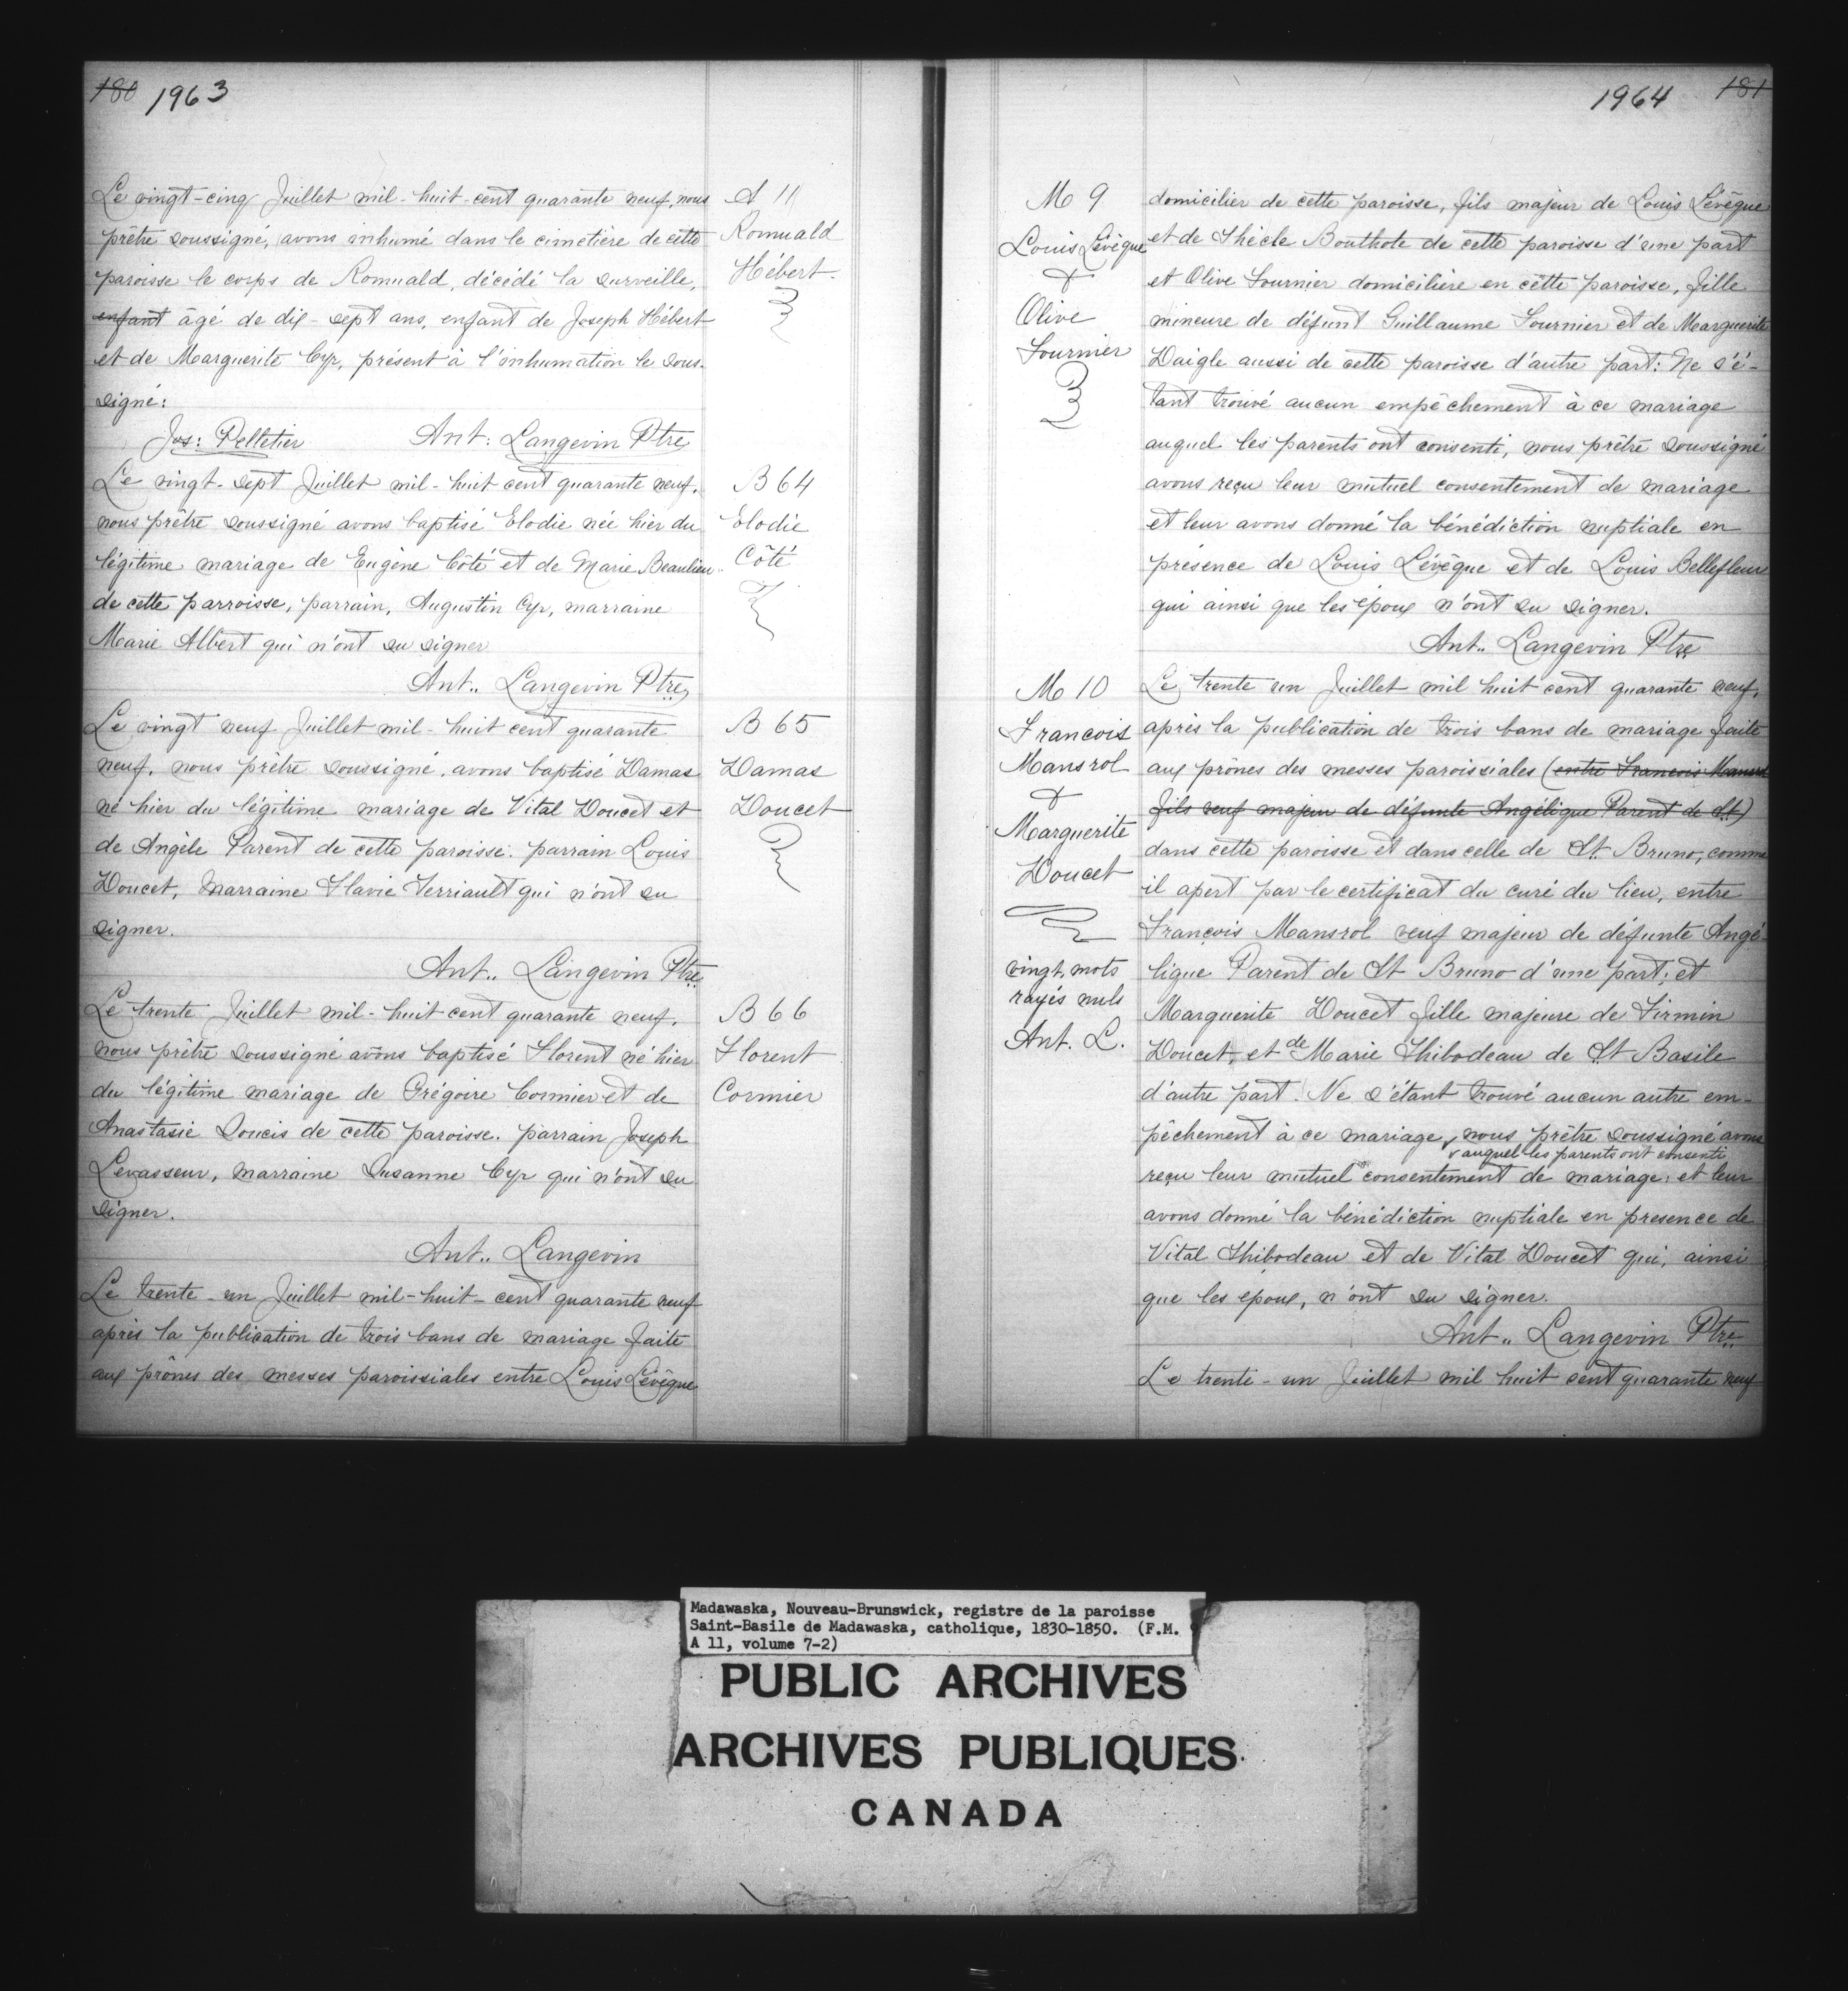 180 1963
Le vingt-cinq Juillet mil-huit-cent quarante neuf, nous
prêtre soussigné, avons inhumé dans le cimetière de cette
paroisse le corps de Romuald, décédé la surveille,
enfant âgé de dix-sept ans, enfant de Joseph Hébert
et de Marguerite Cyr, présent à l'inhumation le sous-
signé:
Jos: Pelletier Ant: Langevin Ptre
Le vingt-sept Juillet mil-huit cent quarante neuf,
nous prêtre soussigné avons baptisé Elodie née hier du
légitime mariage de Eugène Côté et de Marie Beaulieu
de cette parroisse, parrain, Augustin Cyr, marraine
Marie Albert qui n'ont su signer
Ant.. Langevin Ptre
Le vingt neuf Juillet mil-huit cent quarante
neuf, nous prêtre soussigné, avons baptisé Damas
né hier du légitime mariage de Vital Doucet et
de Angèle Parent de cette paroisse. parrain Louis
Doucet, Marraine Flavie Terriault qui n'ont su
signer.
Ant.. Langevin Ptre
Le trente Juillet mil-huit cent quarante neuf,
nous prêtre soussigné avons baptisé Florent né hier
du légitime mariage de Grégoire Cormier et de
Anastasie Soucis de cette paroisse. parrain Joseph
Levasseur, marraine Susanne Cyr qui n'ont su
signer.
Ant.. Langevin
Le trente-un Juillet mil-huit-cent quarante neuf
après la publication de trois bans de mariage faite
aux prônes des messes paroissiales entre Louis Lévêque
S 11
Romuald
Hébert
B 64
Elodie
Côté
B 65
Damas
Doucet
B 66
Florent
Cormier
1964 181
M 9
Louis Lévêque
&
Olive
Fournier
M 10
Francois
Mansrol
&
Marguerite
Doucet
vingt mots
rayés nuls
Ant. L.
domicilier de cette paroisse, fils majeur de Louis Lévêque
et de Thècle Bouthote de cette paroisse d'une part
et Olive Fournier domicilière en cette paroisse, fille
mineure de défunt Guillaume Fournier et de Marguerite
Daigle aussi de cette paroisse d'autre part: Ne s'é-
tant trouvé aucun empêchement à ce mariage
auquel les parents ont consenti, nous prêtre soussigné
avons reçu leur mutuel consentement de mariage
et leur avons donné la bénédiction nuptiale en
présence de Louis Lévêque et de Louis Bellefleur
qui ainsi que les époux n'ont su signer.
Ant.. Langevin Ptre
Le trente un Juillet mil huit cent quarante neuf,
après la publication de trois bans de mariage faite
aux prônes des messes paroissiales (entre Francois Mansrol
fils veuf majeur de défunte Angélique Parent de St)
dans cette paroisse et dans celle de St. Bruno, comme
il apert par le certificat du curé du lieu, entre
François Mansrol veuf majeur de défunte Angé-
lique Parent de St Bruno d'une part; et
Marguerite Doucet fille majeure de Firmin
Doucet, et de Marie Thibodeau de St Basile
d'autre part. Ne s'étant trouvé aucun autre em-
pêchement à ce mariage, nous prêtre soussigné avons
auquel les parents ont consenti
reçu leur mutuel consentement de mariage; et leur
avons donné la bénédiction nuptiale en presence de
Vital Thibodeau et de Vital Doucet qui, ainsi
que les époux, n'ont su signer.
Ant.. Langevin Ptre
Le trente-un Juillet mil huit cent quarante neuf
Madawaska, Nouveau-Brunswick, registre de la paroisse
Saint-Basile de Madawaska, catholique, 1830-1850. (F.M.
A 11, volume 7-2)
PUBLIC ARCHIVES
ARCHIVES PUBLIQUES
CANADA